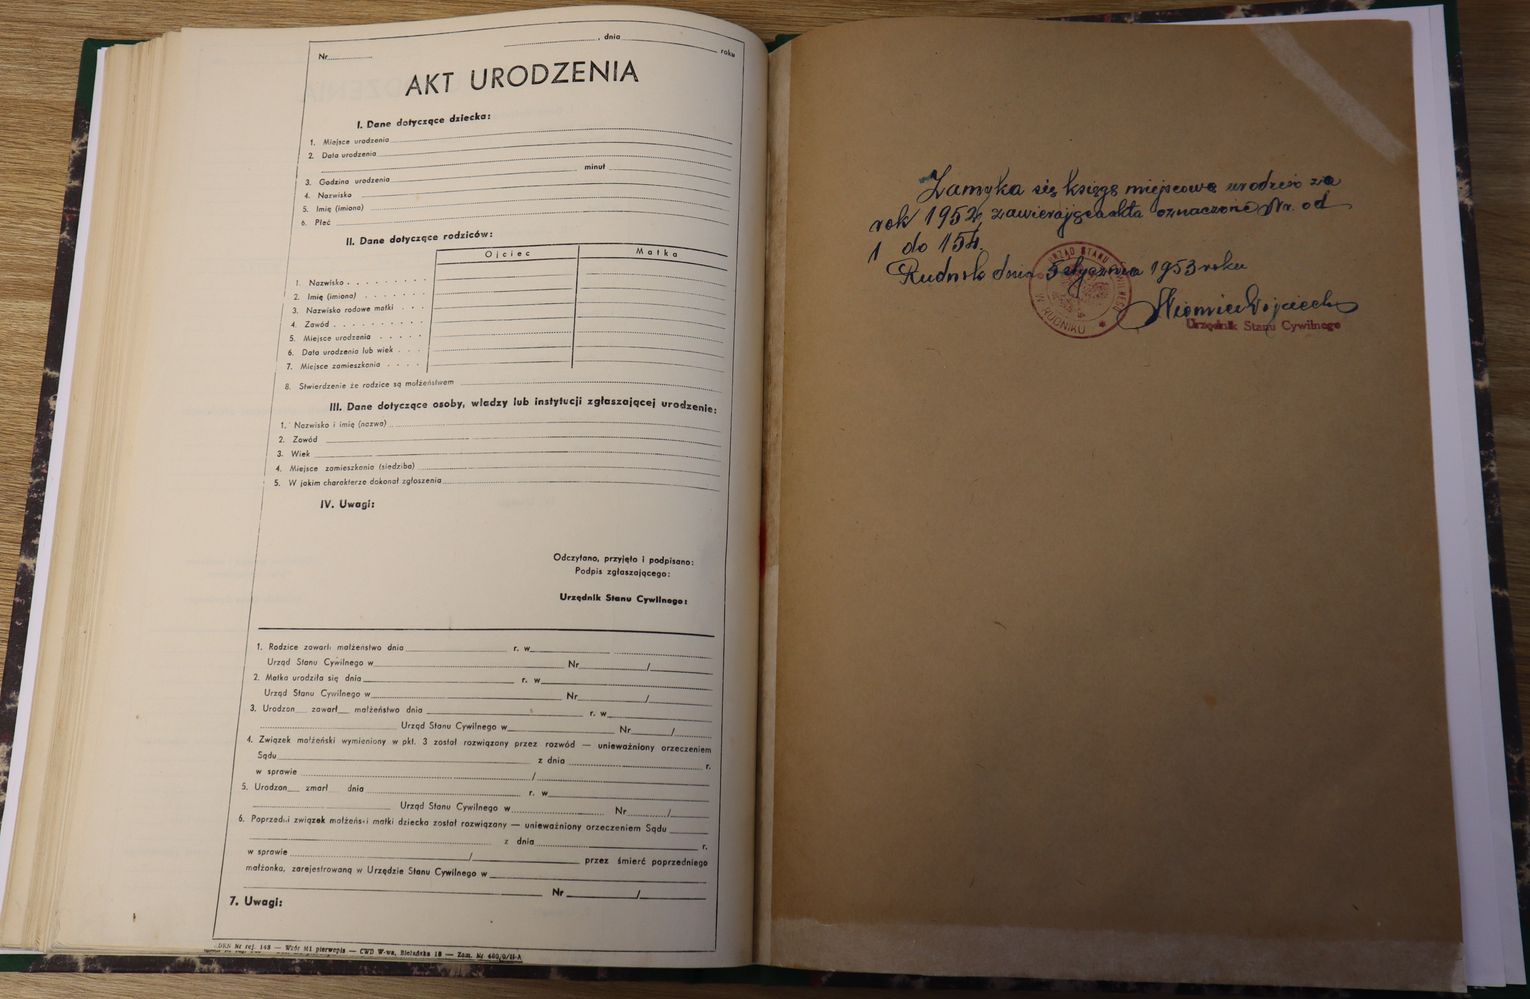 Nr
, dnia
roku
AKT URODZENIA
I. Dane dotyczące dziecka:
1. Miejsce urodzenia
2. Data urodzenia
minut
3. Godzina urodzenia
4. Nazwisko
5. Imię (imiona)
6. Płeć
II. Dane dotyczące rodziców:
Ojciec Matka
1. Nazwisko
2. Imię (imiona)
3. Nazwisko rodowe matki
4. Zawód
5. Miejsce urodzenia
6. Data urodzenia lub wiek
7. Miejsce zamieszkania
8. Stwierdzenie że rodzice są małżeństwem
III. Dane dotyczące osoby, władzy lub instytucji zgłaszającej urodzenie:
1. Nazwisko i imię (nazwa)
2. Zawód
3. Wiek
4. Miejsce zamieszkania (siedziba)
5. W jakim charakterze dokonał zgłoszenia
IV. Uwagi:
Odczytano, przyjęto i podpisano:
Podpis zgłaszającego:
Urzędnik Stanu Cywilnego:
1. Rodzice zawarli małżeństwo dnia r. w
Urząd Stanu Cywilnego w Nr /
2. Matka urodziła się dnia r. w
Urząd Stanu Cywilnego w Nr /
3. Urodzon zawarł małżeństwo dnia r. w
Urząd Stanu Cywilnego w Nr /
4. Związek małżeński wymieniony w pkt. 3 został rozwiązany przez rozwód — unieważniony orzeczeniem
Sądu z dnia r.
w sprawie /
5. Urodzon zmarł dnia r. w
Urząd Stanu Cywilnego w Nr /
6. Poprzedni związek małżeński matki dziecka został rozwiązany — unieważniony orzeczeniem Sądu
z dnia r.
w sprawie / przez śmierć poprzedniego
małżonka, zarejestrowaną w Urzędzie Stanu Cywilnego w
Nr /
7. Uwagi:
Nr rej. 148 — Wzór M1 pierwopis — CWD W-wa, Bielańska 18 — Zam. Nr 480/0/II-A
Zamyka się księgę miejscową urodzeń za
rok 1952 zawierającą akta oznaczone Nr. od
1 do 154.
Rudnik dnia 5 stycznia 1953 roku
URZĄD STANU CYWILNEGO
W RUDNIKU
Wojciech
Urzędnik Stanu Cywilnego